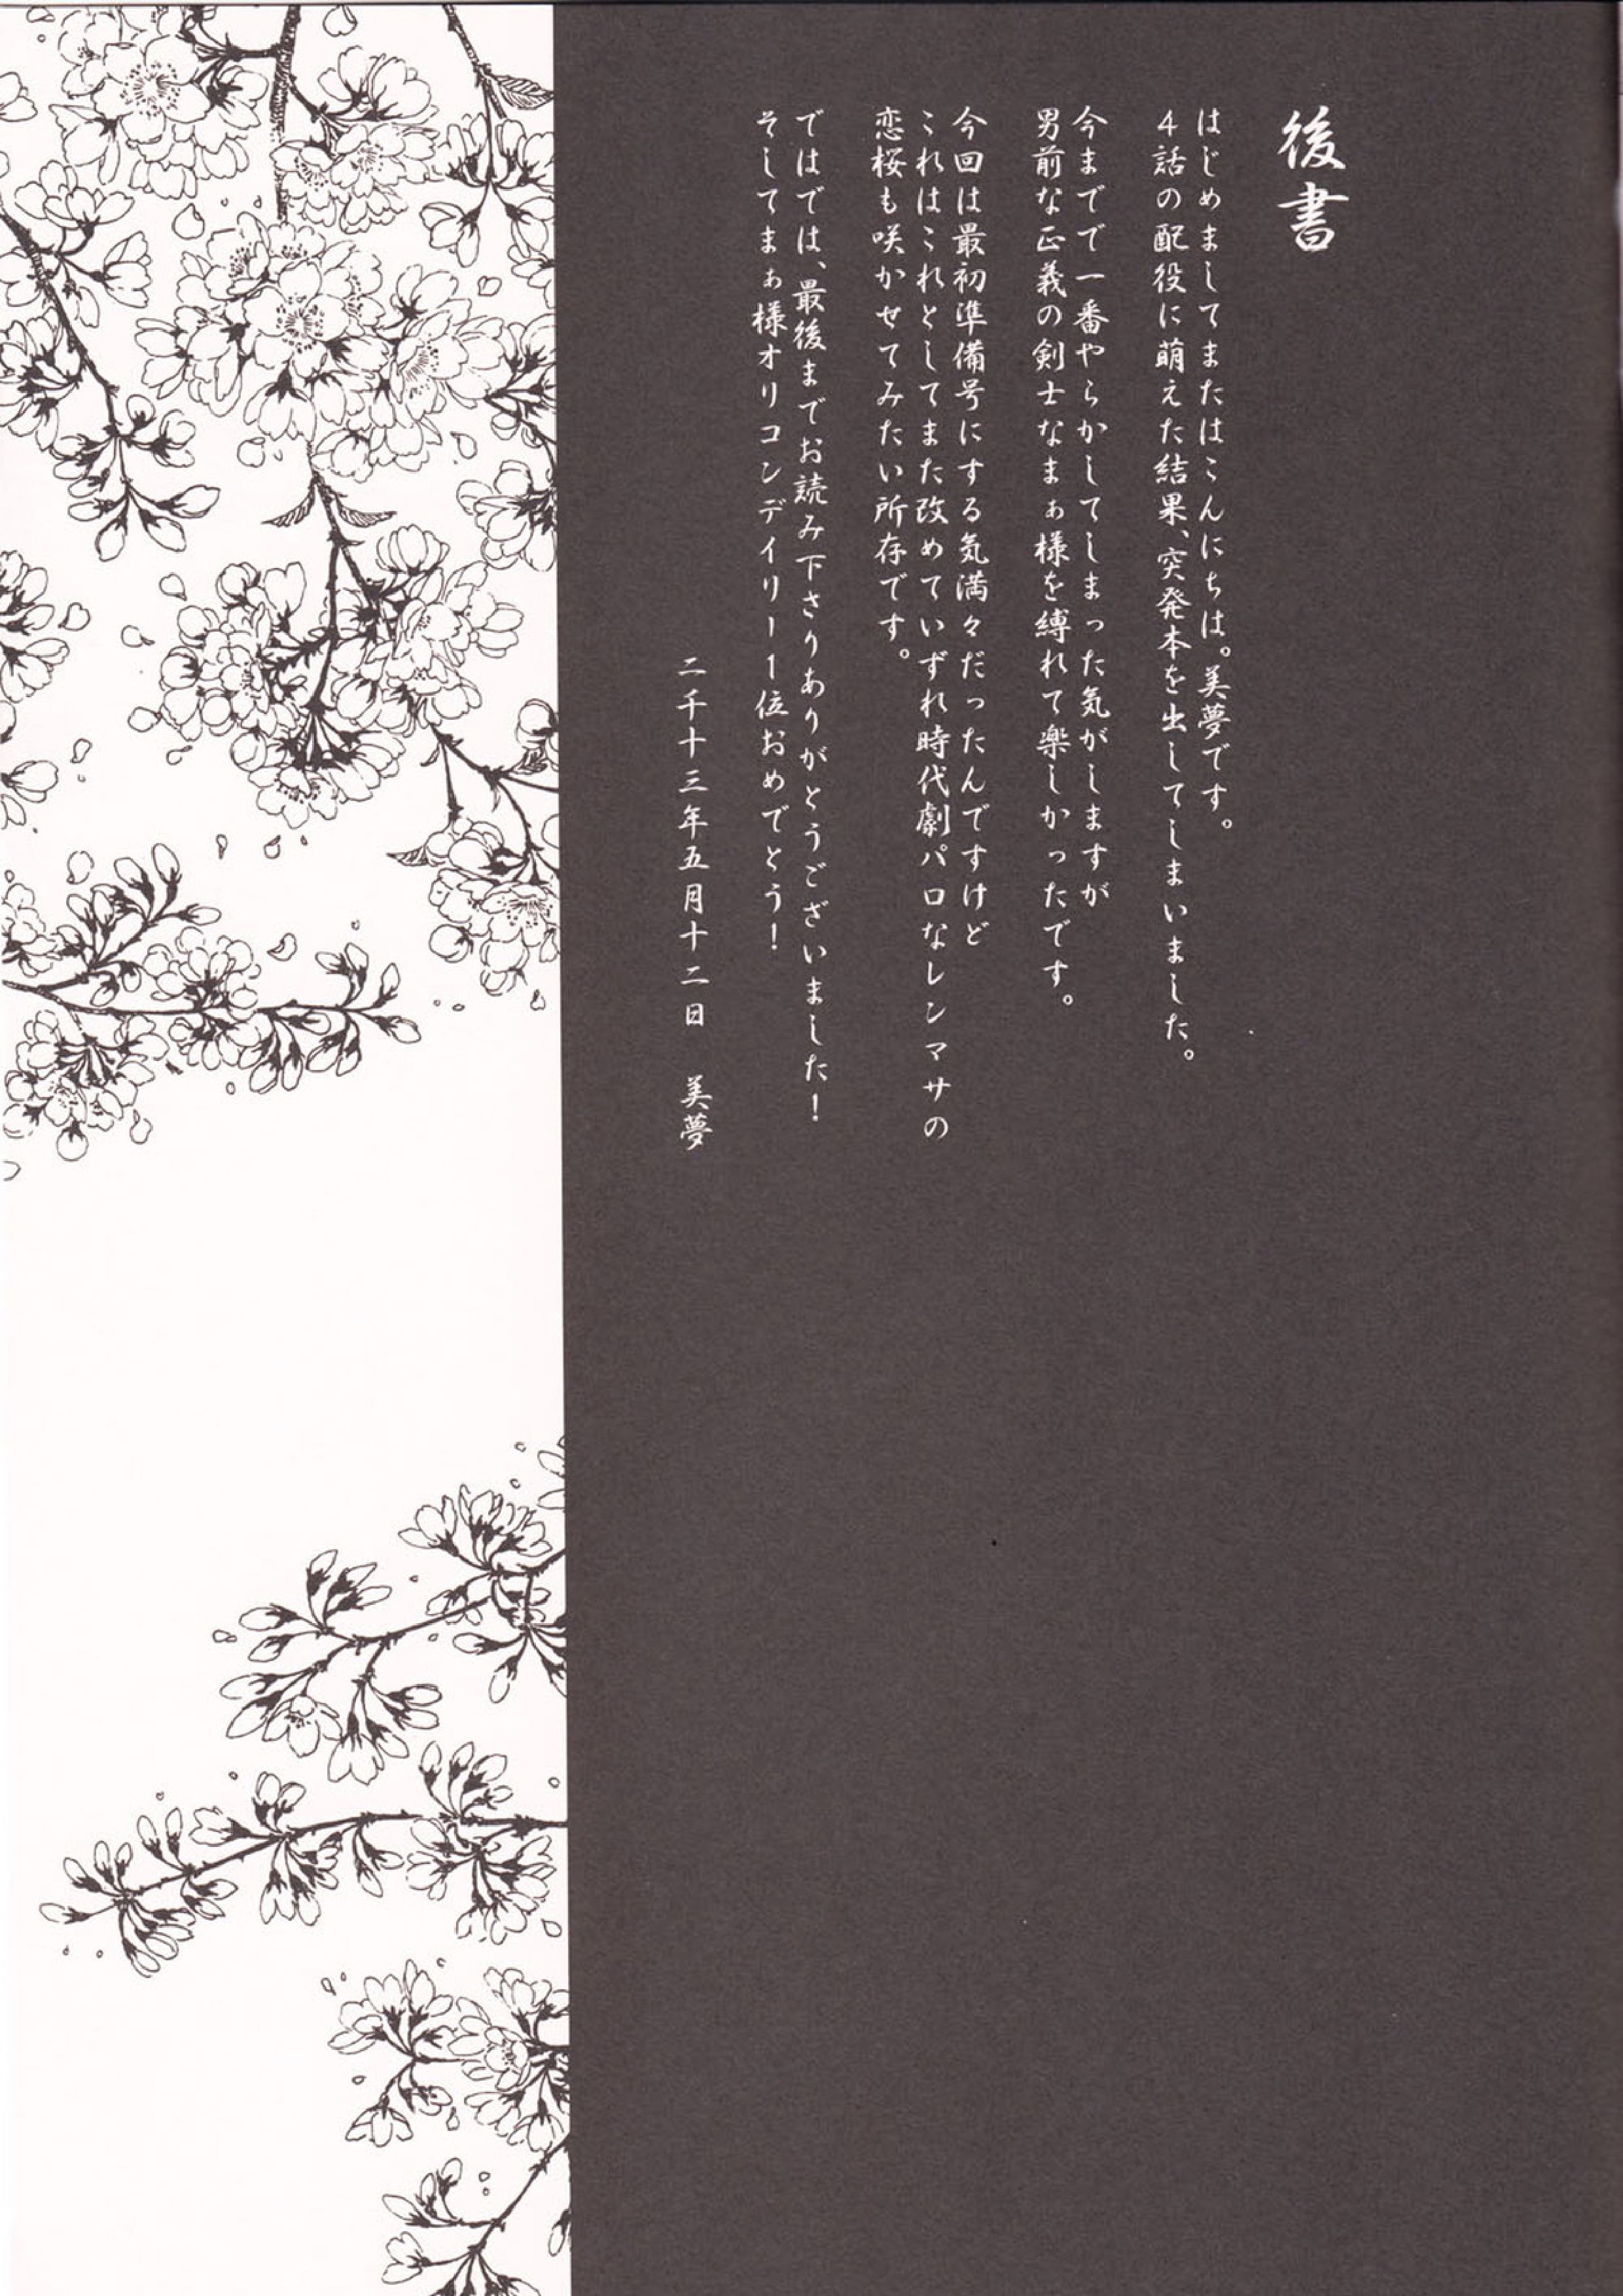 後書
はじめましてまたはこんにちは。美夢です。
4話の配役に萌えた結果、突発本を出してしまいました。
今までで一番やらかしてしまった気がしますが
男前な正義の剣士なまぁ様を縛れて楽しかったです。
今回は最初準備号にする気満々だったんですけど
これはこれとしてまた改めていずれ時代劇パロなレンマサの
恋桜も咲かせてみたい所存です。
ではでは、最後までお読み下さりありがとうございました！
そしてまぁ様オリコンデイリー1位おめでとう！
二千十三年五月十二日　美夢